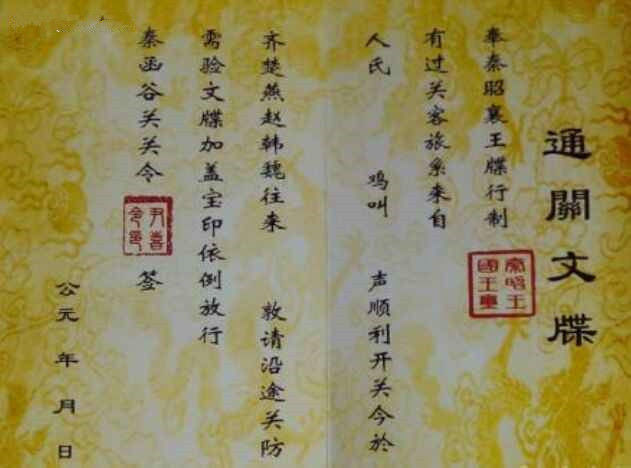 通關文牒
奉秦昭襄王牒行制
有过关客旅系来自
人氏 鸡叫 声顺利开关今於
齐楚燕赵韩魏往来 敦请沿途关防
需验文牒加盖宝印依倒放行
秦函谷关关令 签
尹喜
公元 年 月 日